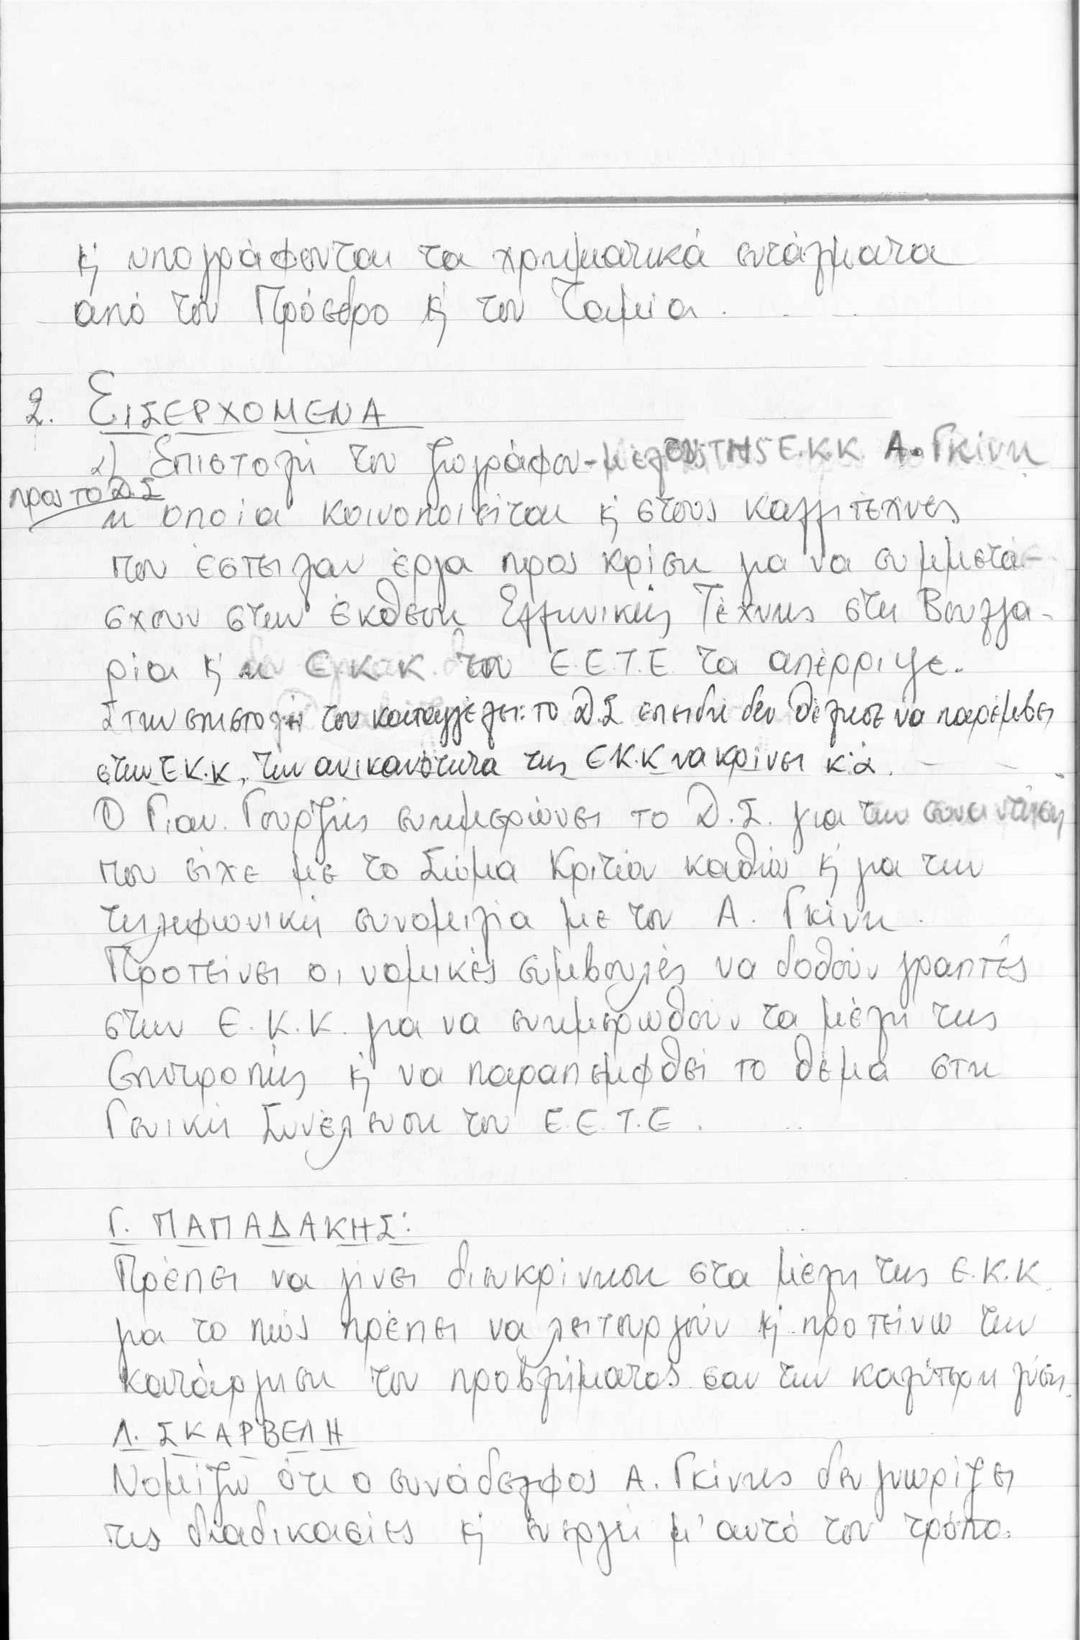 κ' υπογράφονται τα χρηματικά εντάλματα
από τον Πρόεδρο κ' τον Ταμία.
2. ΕΙΣΕΡΧΟΜΕΝΑ
α) Επιστολή του ζωγράφου-μέλους ΤΗΣ Ε.Κ.Κ Α. Γκίνη
προς το Δ.Σ
η οποία κοινοποιείται κ' στους καλλιτέχνες
που έστειλαν έργα προς κρίση για να συμμετά-
σχουν στην έκθεση Ελληνικής Τέχνης στη Βουλγα-
ρία κ' η Ε.Κ.Κ. του Ε.Ε.Τ.Ε τα απέρριψε.
Στην επιστολή του καταγγέλει: το Δ.Σ επειδή δεν θέλησε να παρέμβει
στην Ε.Κ.Κ, την ανικανότητα της Ε.Κ.Κ να κρίνει κ.ά.
Ο Γιαν. Γουρζής ενημερώνει το Δ.Σ. για την συνάντηση
που είχε με το Σώμα Κριτών καθώς κ' για την
τηλεφωνική συνομιλία με τον Α. Γκίνη.
Προτείνει οι νομικές συμβουλές να δοθούν γραπτές
στην Ε.Κ.Κ. για να ενημερωθούν τα μέλη της
Επιτροπής κ' να παραπεμφθεί το θέμα στη
Γενική Συνέλευση του Ε.Ε.Τ.Ε.
Γ. ΠΑΠΑΔΑΚΗΣ:
Πρέπει να γίνει διευκρίνηση στα μέλη της Ε.Κ.Κ.
για το πώς πρέπει να λειτουργούν κ' προτείνω την
κατάργηση του προβλήματος σαν την καλύτερη λύση.
Λ. ΣΚΑΡΒΕΛΗ
Νομίζω ότι ο συνάδελφος Α. Γκίνης δεν γνωρίζει
τις διαδικασίες κ' ενεργεί μ' αυτό τον τρόπο.